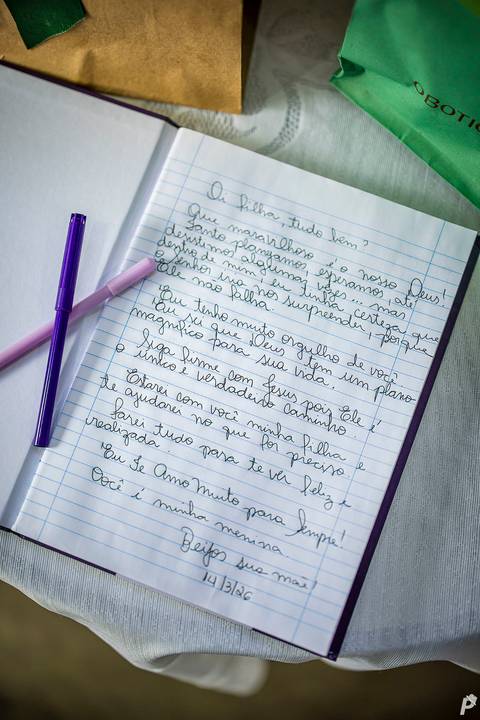 O BOTIC
Oi filha, tudo bem?
Que maravilhoso é o nosso Deus!
Tanto planejamos, esperamos, até
desistimos algumas vezes... mas
dentro de mim eu tinha certeza que
o Senhor iria nos surpreender, porque
Ele não falha.
Eu tenho muito orgulho de você
Eu sei que Deus tem um plano
magnífico para sua vida.
Siga firme com Jesus pois Ele é
o único e verdadeiro caminho.
Estarei com você minha filha e
te ajudarei no que for preciso
farei tudo para te ver feliz e
realizada.
Eu Te Amo Muito para Sempre!
Você é minha menina
Beijos sua mãe!
14/3/26